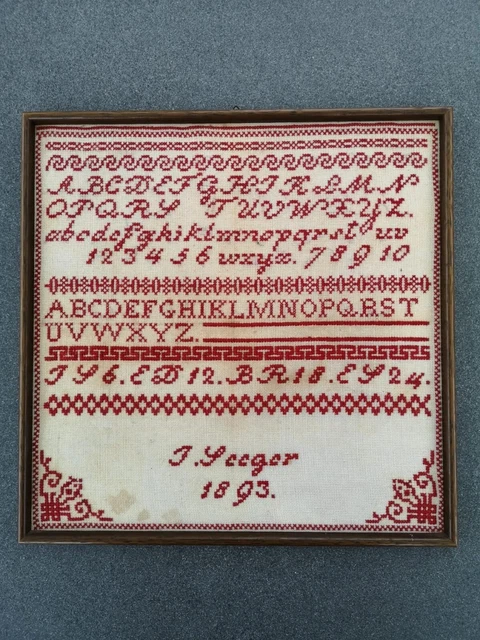 ABCDEFGHIKLMN
OPQRS TUVWXYZ.
abcdefghiklmnopqrst uv
123456 wxyz. 78910
ABCDEFGHIKLMNOPQRST
UVWXYZ.
J S 6. E D 12. B R. 18. E S 24.
J. Seeger
1893.